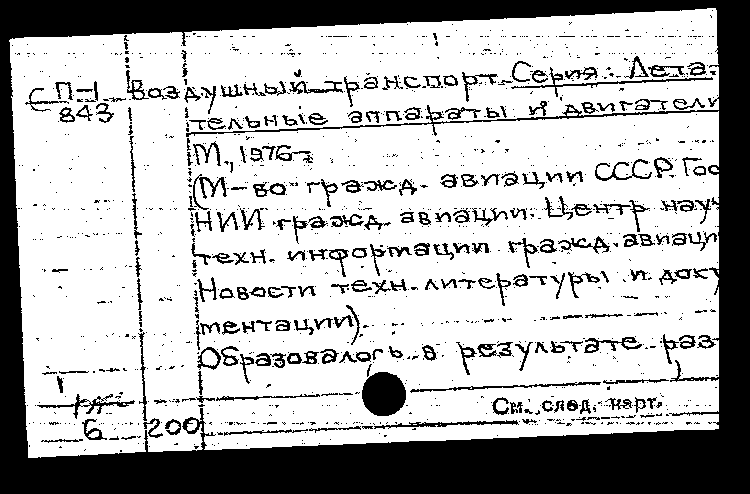 С П-1 Воздушный транспорт. Серия: Лета-
843 тельные аппараты и двигатели
М., 1976-
(М-во гражд. авиации СССР. Гос
НИИ гражд. авиации. Центр науч
техн. информации гражд. авиаци
Новости техн. литературы и доку
ментации).
Образовалось в результате раз
См. след. карт.
6 200